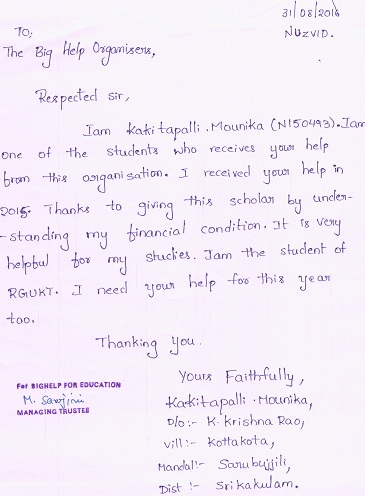 31/08/2016
NUZVID.
TO;
The Big Help Organisers,
Respected sir,
Iam Kakitapalli . Mounika (N150493). Iam
one of the students who receives your help
from this organisation. I received your help in
2015. Thanks to giving this scholar by under-
-standing my financial condition. It is very
helpful for my studies. Iam the student of
RGUKT. I need your help for this year
too.
Thanking You.
Yours Faithfully,
Kakitapalli . Mounika,
D/o :- K. Krishna Rao,
Vill :- Kottakota,
Mandal :- Sarubujjili,
Dist :- Srikakulam.
For BIGHELP FOR EDUCATION
M. Sarojini
MANAGING TRUSTEE